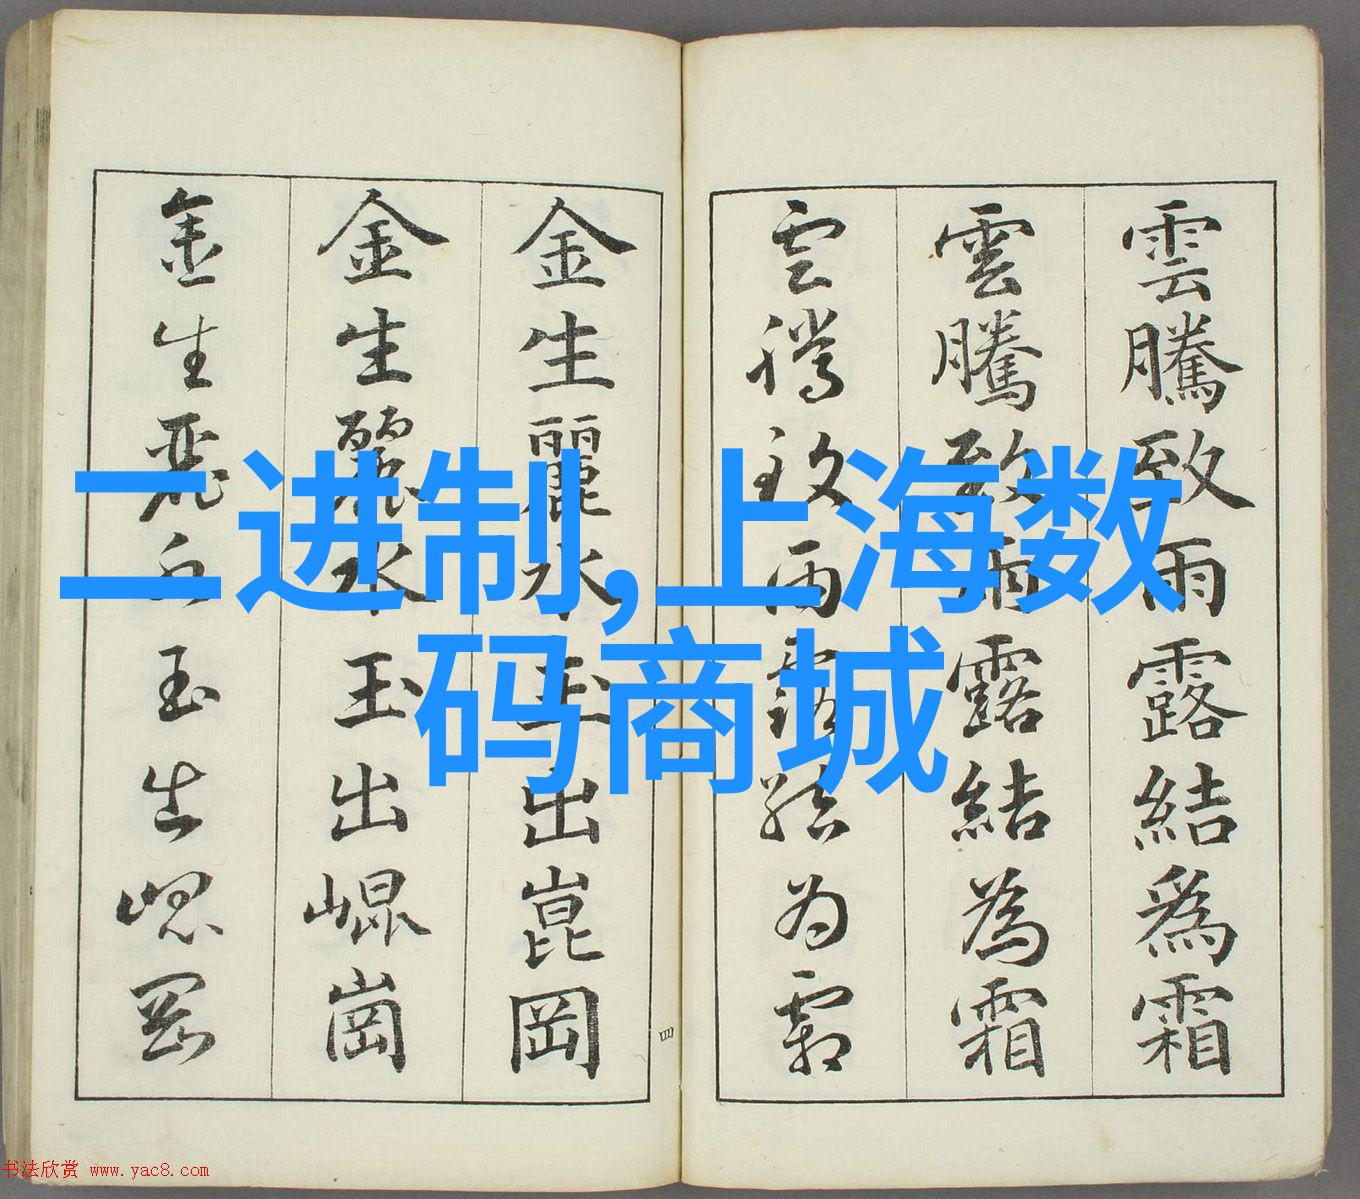 二进制,上海数
码商城
雲騰致雨露結爲霜
雲騰致雨露結為霜
雲騰致雨露結為霜
金生麗水玉出崑岡
金生麗水玉出崐崗
金生麗水玉出崐岡
四
书法欣赏 www.yac8.com